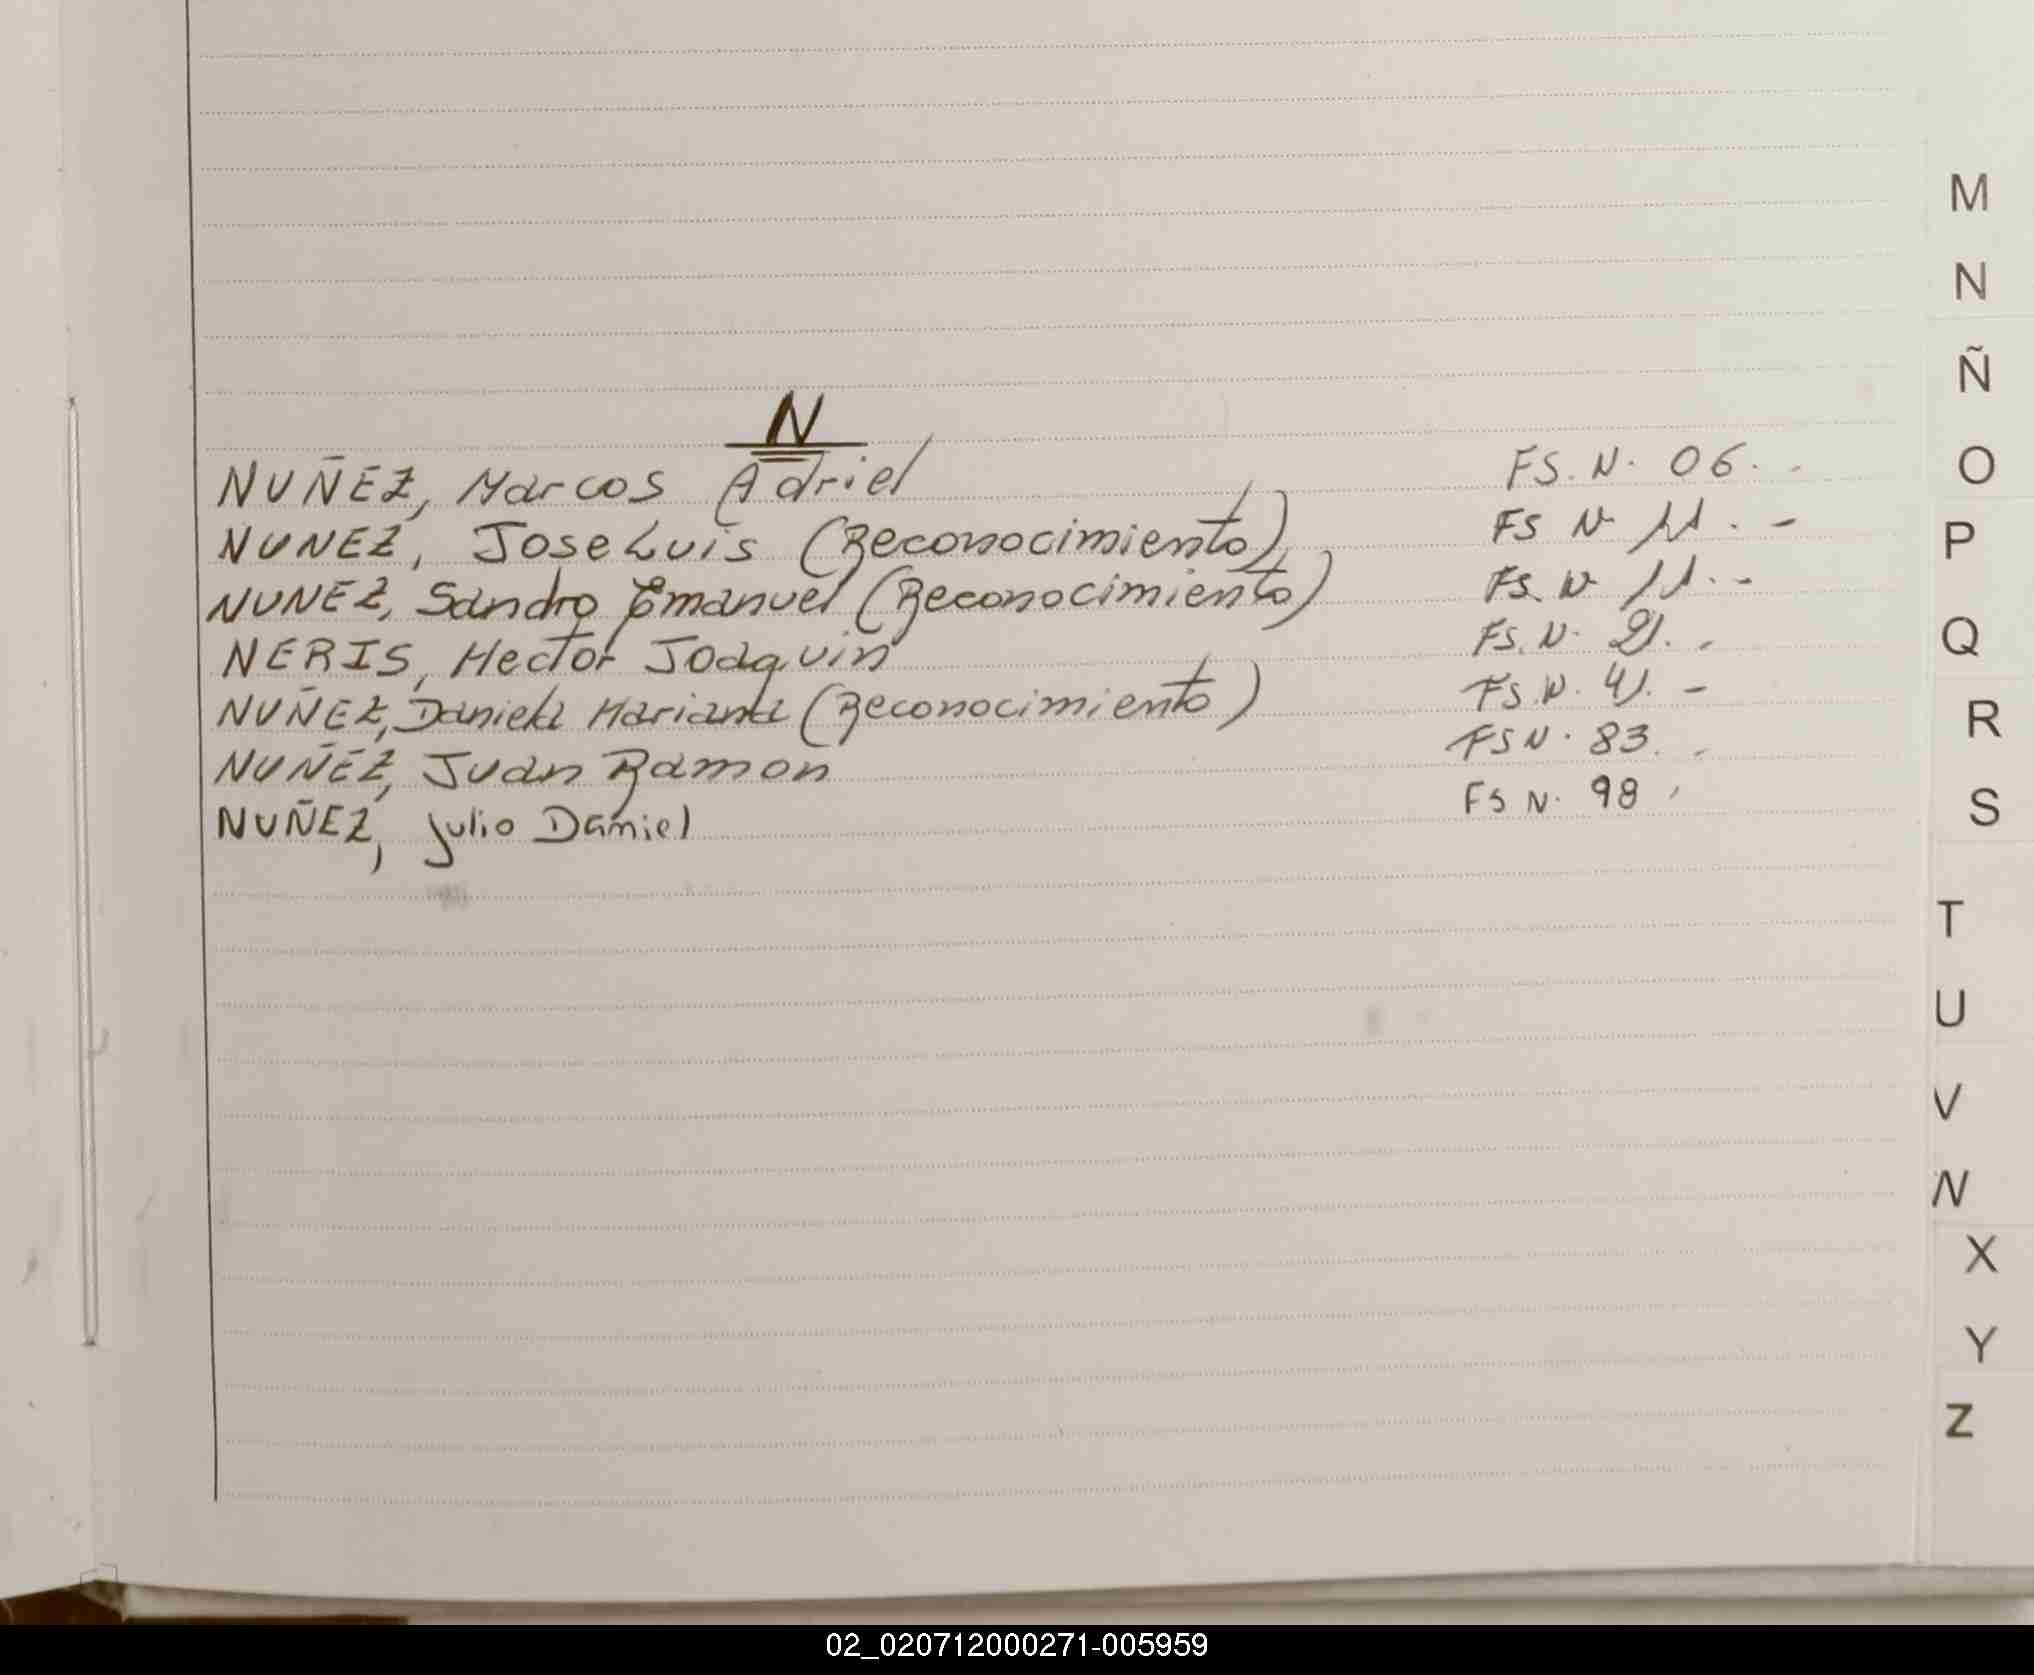 N
NUÑEZ, Marcos Adriel FS. N. 06. -
NUNEZ, Jose Luis (Reconocimiento) FS N 11. -
NUNEZ, Sandro Emanuel (Reconocimiento) FS. N 11. -
NERIS, Hector Joaquin FS. N. 21. -
NUÑEZ, Daniela Mariana (Reconocimiento) FS. N. 41. -
NUÑEZ, Juan Ramon FS N. 83. -
NUÑEZ, Julio Daniel FS N. 98
M
N
Ñ
O
P
Q
R
S
T
U
V
W
X
Y
Z
02_020712000271-005959